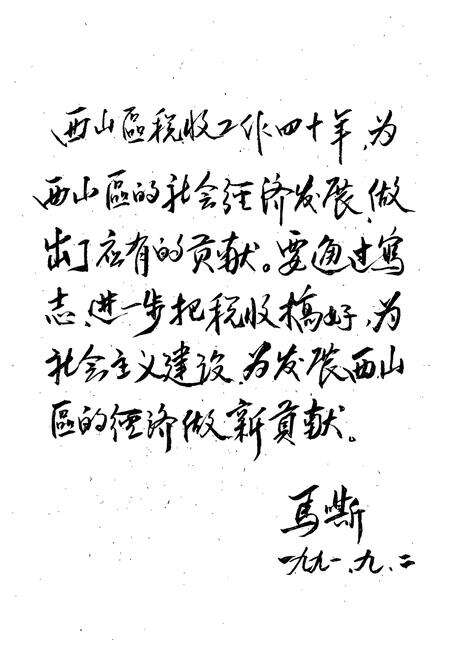 西山區税收工作四十年,为
西山區的社会经济发展,做
出了应有的贡献。要通过写
志,进一步把税收搞好,为
社会主义建设,为发展西山
區的经济做新贡献。
馬嘶
一九九一、九、二